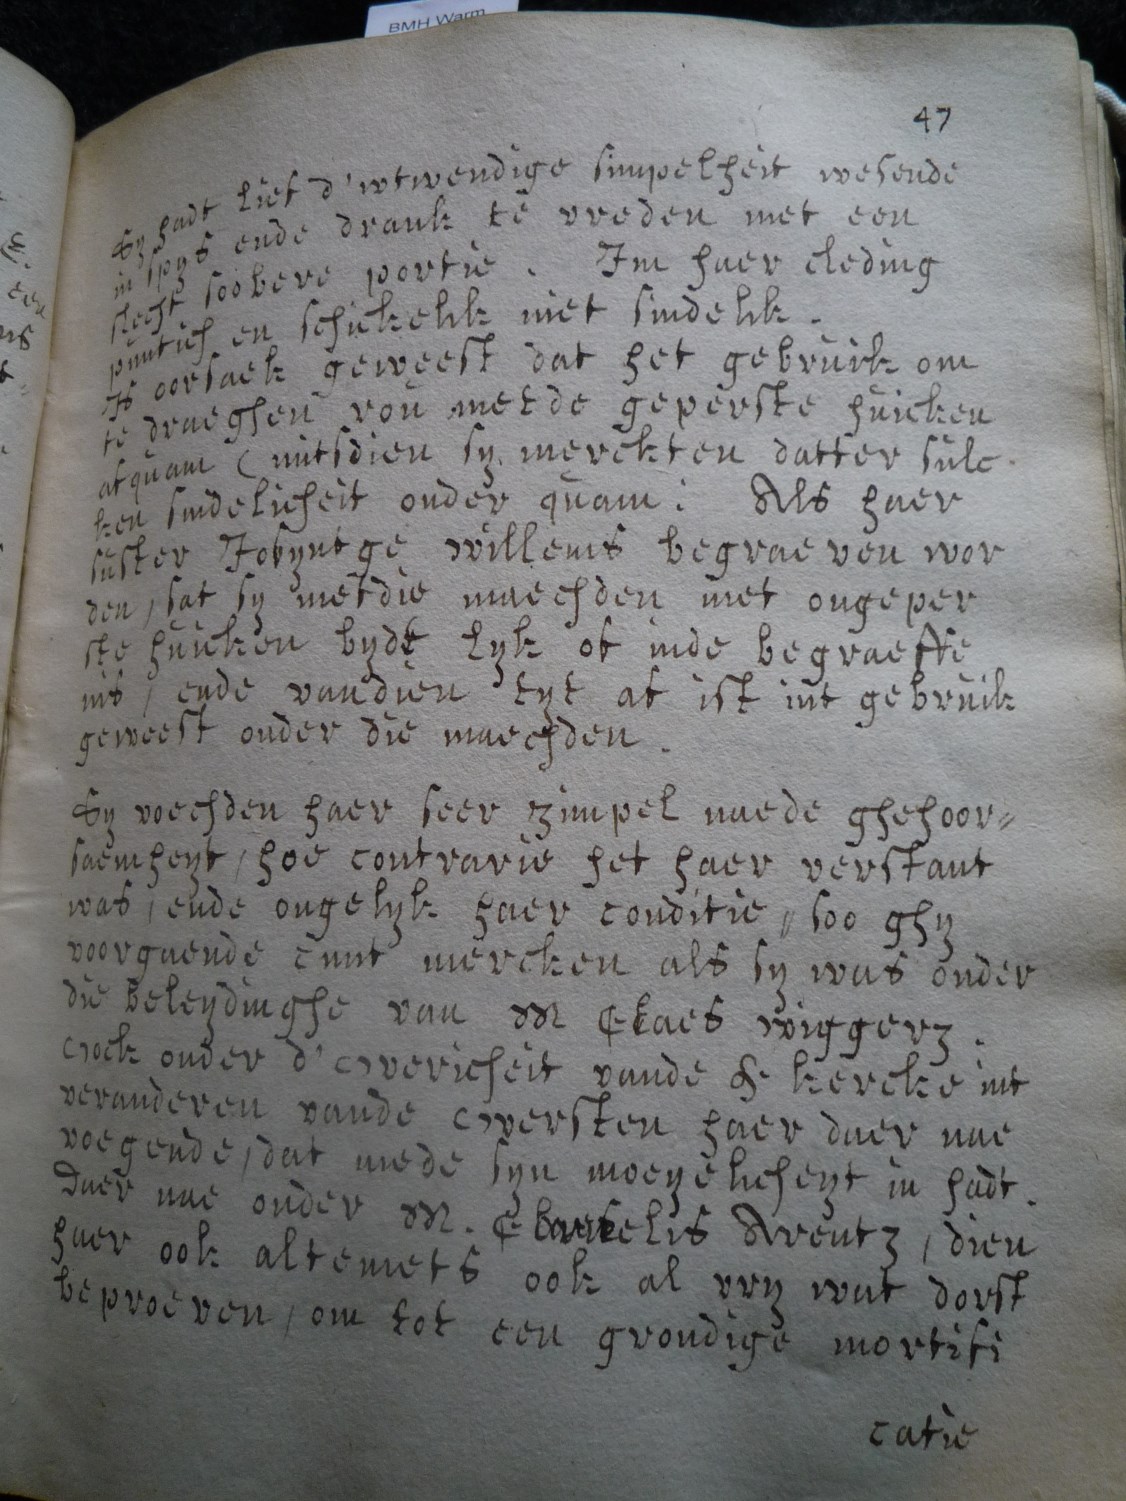 BMH Warm
47
Sy hadt lief d'wtwendige simpelheit wesende
in spys ende drank te vreden met een
slecht soobere portie. Im haer cleding
puntich en schickelik niet sindelik.
Is oorsaek geweest dat het gebruik om
te draeghen vou metde geperste huicken
afquam (mitsdien sy merckten datter sulc
ken sindelicheit onder quam: Als haer
suster Josyntge Willems begraeven wor
den, sat sy metdie maechden met ongeper
ste huicken bydt lyk of inde begraeffe
nis, ende vandien tyt af ist int gebruik
geweest onder die maechden.
Sy voechden haer seer zimpel naede ghehoor⸗
saemheyt, hoe contrarie het haer verstant
was, ende ongelyk haer conditie, soo ghy
voorgaende cunt mercken als sy was onder
die beleydinghe van M Claes Wiggerz.
Oock onder d'Overicheit vande H kercke int
veranderen vande Oversten haer daer nae
voegende, dat mede syn moeyelicheyt in hadt.
Daer nae onder M. Arentz, dien
haer ook altemets ook al vry wat dorst
beproeven, om tot een grondige mortifi
catie